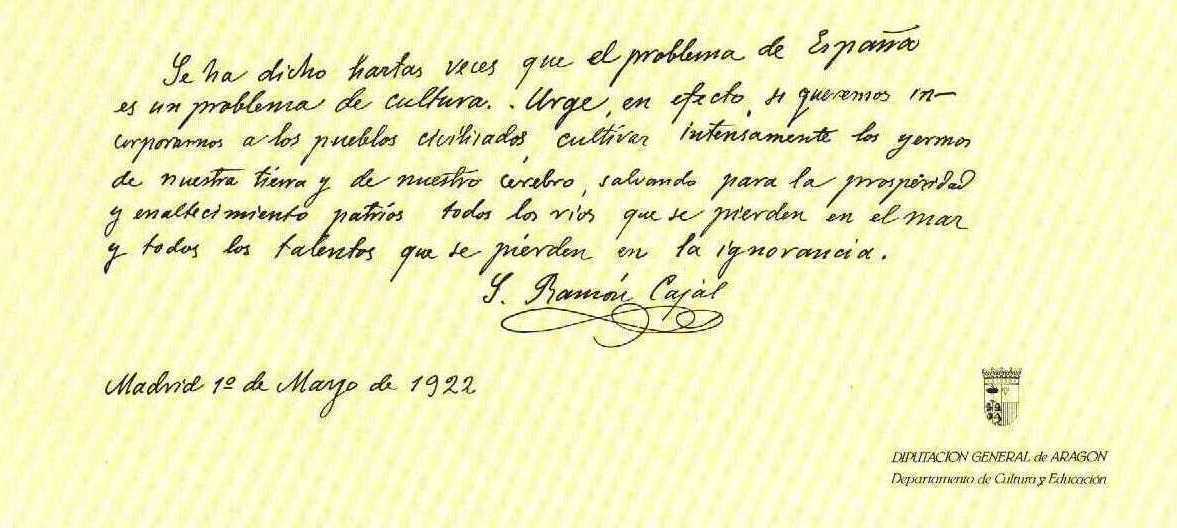 Se ha dicho hartas veces que el problema de España
es un problema de cultura. . Urge, en efecto, si queremos in-
corporarnos a los pueblos civilizados, cultivar intensamente los yermos
de nuestra tierra y de nuestro cerebro, salvando para la prosperidad
y enaltecimiento patrios todos los rios que se pierden en el mar
y todos los talentos que se pierden en la ignorancia.
S. Ramón Cajal
Madrid 1º de Mayo de 1922
DIPUTACION GENERAL de ARAGON
Departamento de Cultura y Educación